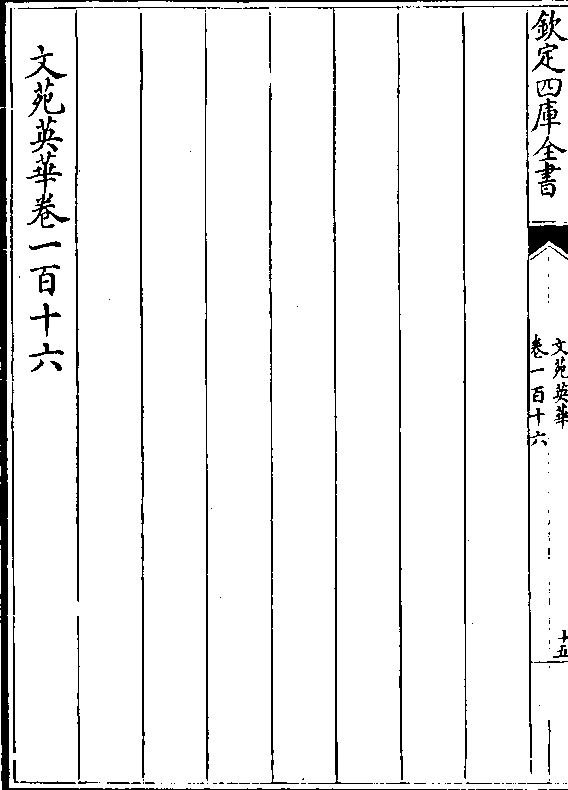 欽定四庫全書
文苑英華
卷一百十六
十五
文苑英華卷一百十六